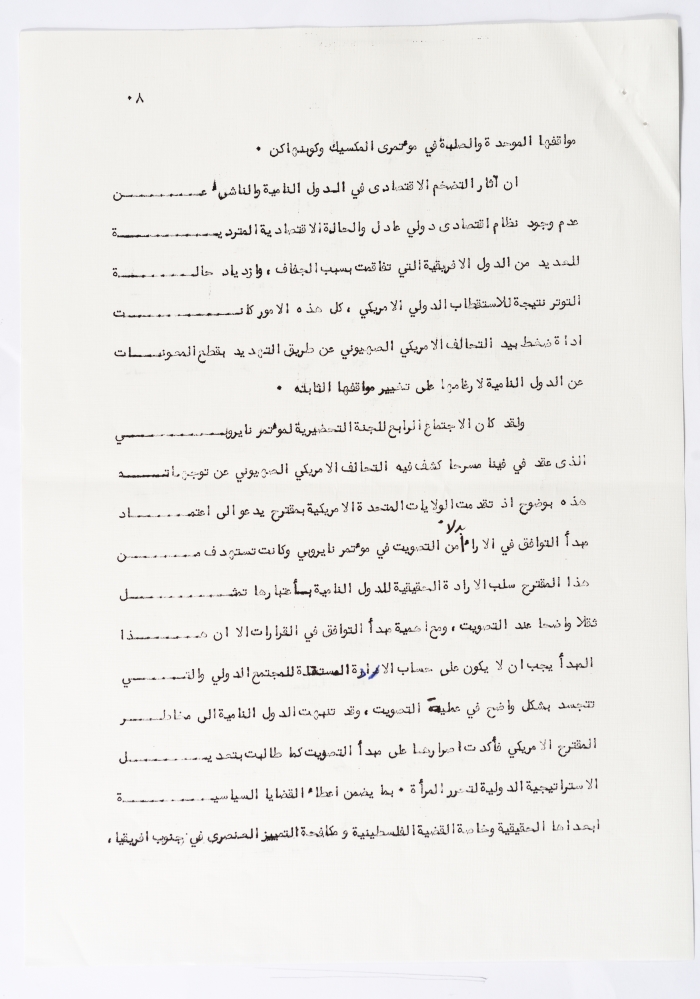 ٠٨
مواقفها الموحدة والصلبة في مؤتمرى المكسيك وكوبنهاكن ٠
ان آثار التضخم الاقتصادى في الدول النامية والناشيء عــــــــن
عدم وجود نظام اقتصادى دولي عادل والحالة الاقتصادية المترديــــــــة
للعديد من الدول الافريقية التي تفاقمت بسبب الجفاف ، وازدياد حالــــــــة
التوتر نتيجة للاستقطاب الدولي الامريكي ، كل هذه الامور كانــــــــت
اداة ضغط بيد التحالف الامريكي الصهيوني عن طريق التهديد بقطع المعونــــات
عن الدول النامية لارغامها على تغيير مواقفها الثابته ٠
ولقد كان الاجتماع الرابع للجنة التحضيرية لمؤتمر نايروبــــــــي
الذى عقد في فينا مسرحا كشف فيه التحالف الامريكي الصهيوني عن توجهاتــــــه
هذه بوضوح اذ تقدمت الولايات المتحدة الامريكية بمقترح يدعو الى اعتمــــــاد
مبدأ التوافق في الاراء بدلا من التصويت في مؤتمر نايروبي وكانت تستهدف مــــــن
هذا المقترح سلب الارادة الحقيقية للدول النامية بأعتبارها تمثــــــــل
ثقلا واضحا عند التصويت ، ومع اهمية مبدأ التوافق في القرارات الا ان هــــــذا
المبدأ يجب ان لا يكون على حساب الارادة المستقلة للمجتمع الدولي والتــــــي
تتجسد بشكل واضح في عملية التصويت ، وقد تنبهت الدول النامية الى مخاطــــــر
المقترح الامريكي فأكدت اصرارها على مبدأ التصويت كما طالبت بتعديــــــــل
الاستراتيجية الدولية لتحرر المرأة ٠ بما يضمن اعطاء القضايا السياسيــــــــة
ابعادها الحقيقية وخاصة القضية الفلسطينية ومكافحة التمييز العنصرى في جنوب افريقيا ،